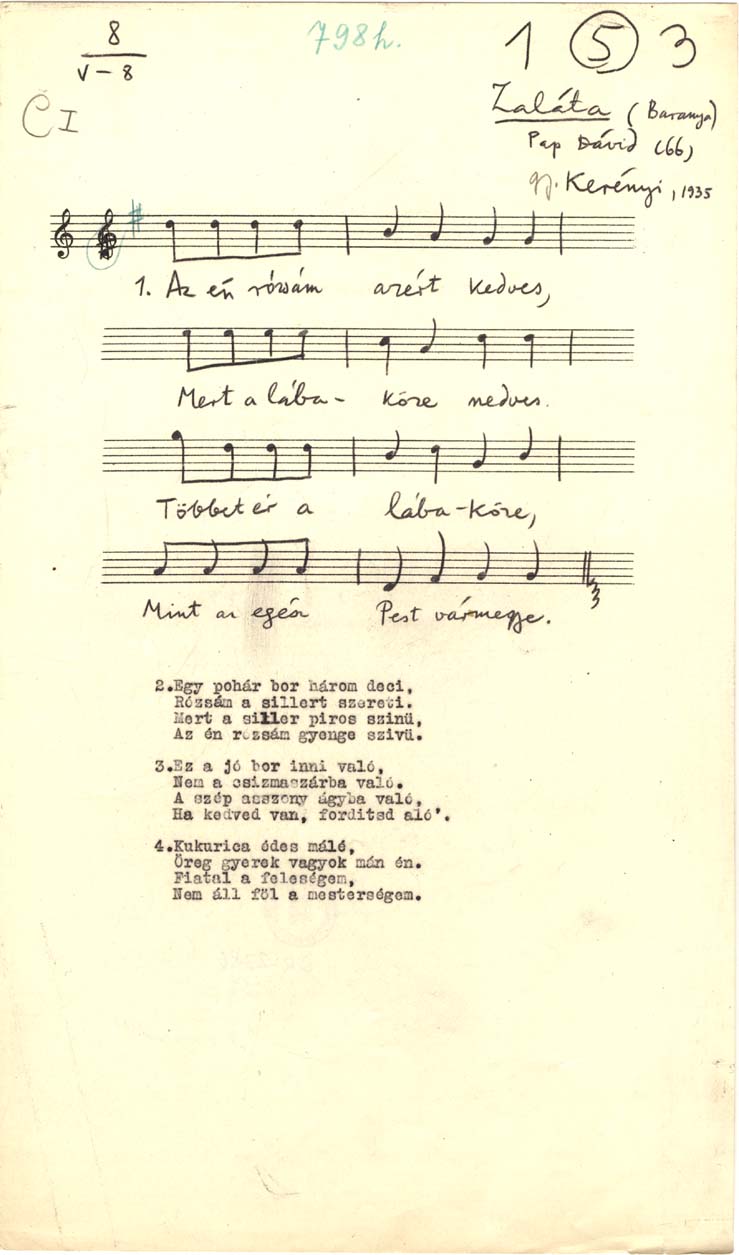 8
V – 8
798h.
1 5 3
C I
Zaláta (Baranya)
Pap Dávid (66)
gy. Kerényi, 1935
1. Az én rózsám azért kedves,
Mert a lába- köze nedves.
Többet ér a lába-köze,
Mint az egész Pest vármegye.
2.Egy pohár bor három deci,
Rózsám a sillert szereti.
Mert a siller piros szinü,
Az én rózsám gyenge szivü.
3.Ez a jó bor inni való,
Nem a csizmaszárba való.
A szép asszony ágyba való,
Ha kedved van, forditsd aló'.
4.Kukurica édes málé,
Öreg gyerek vagyok mán én.
Fiatal a feleségem,
Nem áll föl a mesterségem.